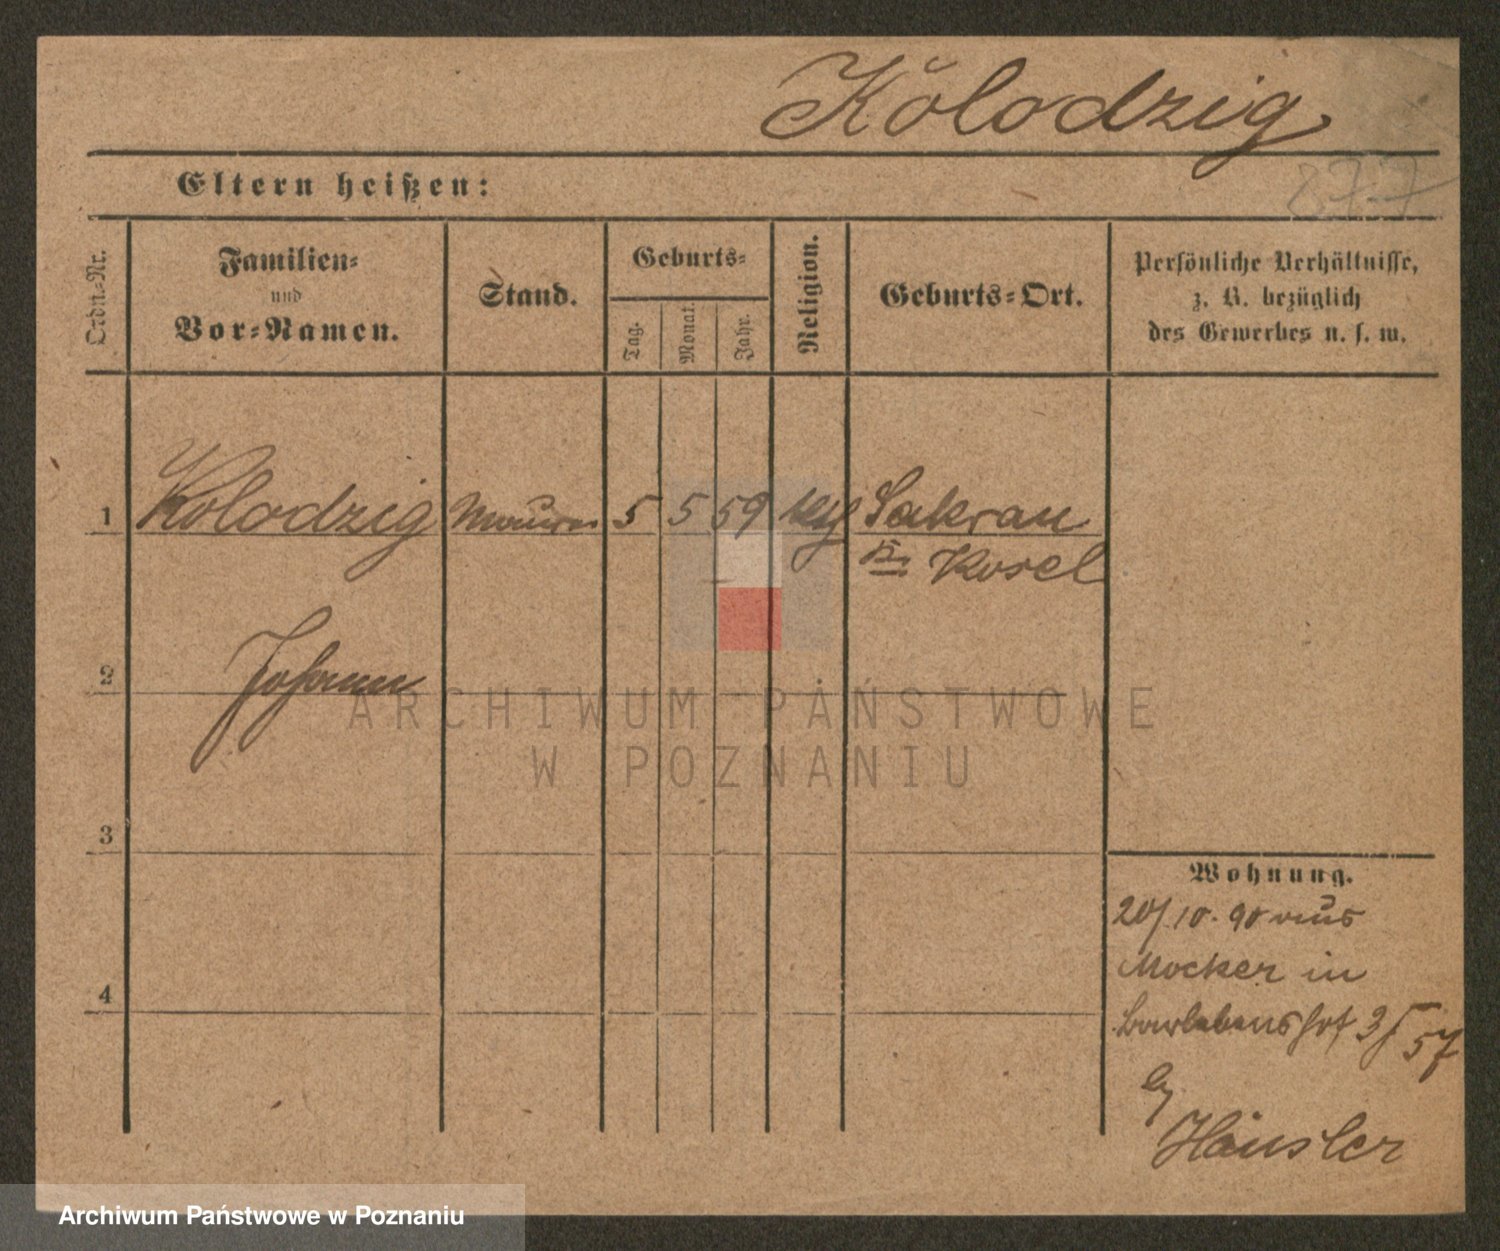 Kolodzig
277
Eltern heißen:
Ordn.-Nr.
Familien-
und
Vor-Namen.
Stand.
Geburts-
Tag.
Monat.
Jahr.
Religion.
Geburts-Ort.
Persönliche Verhältnisse,
z. B. bezüglich
des Gewerbes u. s. w.
1 Kolodzig Maurer 5 5 59 kth Sakrau
Kr. Kosel
2 Johann
3
4
Wohnung.
20/10. 90 aus
Mocker in
3/5 57
Häusler
ARCHIWUM PAŃSTWOWE
W POZNANIU
Archiwum Państwowe w Poznaniu